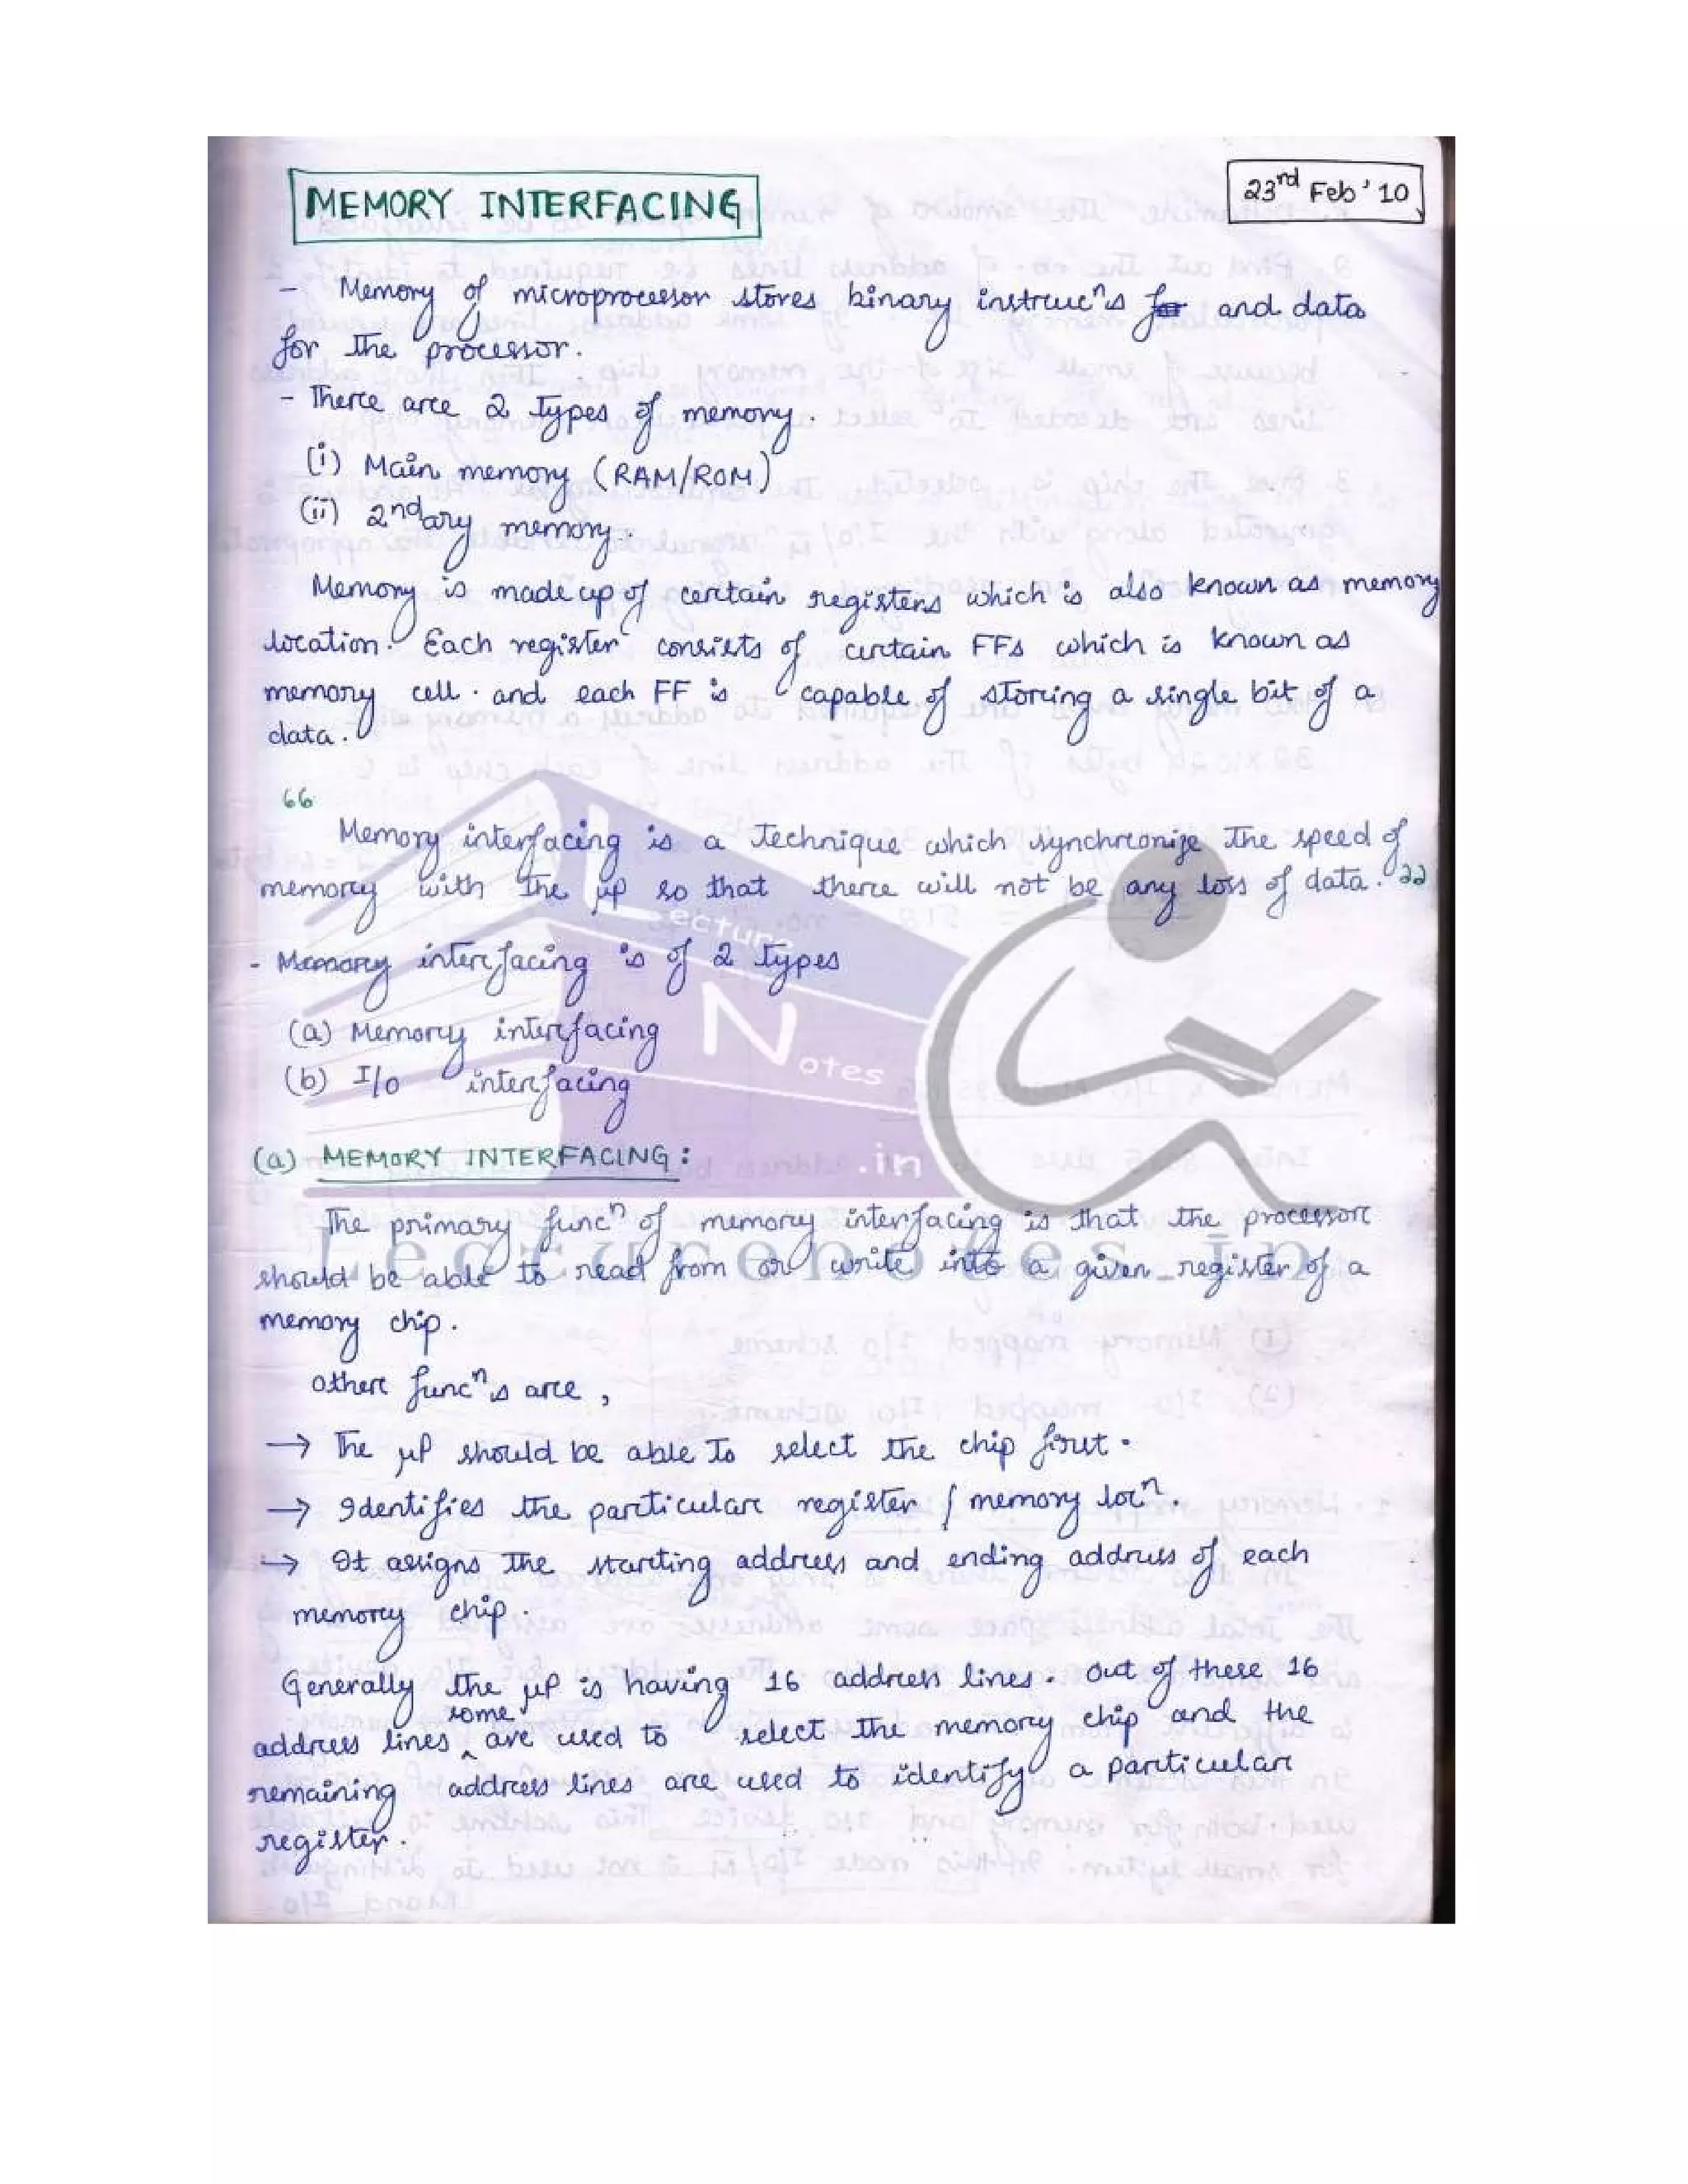 MEMORY INTERFACING
23rd Feb' 10
- Memory of microprocessor stores binary instrucns for and data
for the processor.
- There are 2 types of memory.
(i) Main memory (RAM/ROM)
(ii) 2ndary memory.
Memory is made up of certain registers which is also known as memory
location. Each register consists of certain FFs which is known as
memory cell. and each FF is capable of storing a single bit of a
data.
"
Memory interfacing is a technique which synchronize the speed of
memory with the μP so that there will not be any loss of data."
- Memory interfacing is of 2 types
(a) Memory interfacing
(b) I/o interfacing
(a) MEMORY INTERFACING:
The primary funcn of memory interfacing is that the processor
should be able to read from or write into a given register of a
memory chip.
other funcns are,
→ The μP should be able to select the chip first.
→ Identifies the particular register / memory locn.
→ It assigns the starting address and ending address of each
memory chip.
Generally the μP is having 16 address lines. Out of these 16
address lines some are used to select the memory chip and the
remaining address lines are used to identify a particular
register.
Lecture
Notes
.in
Lecturenotes.in